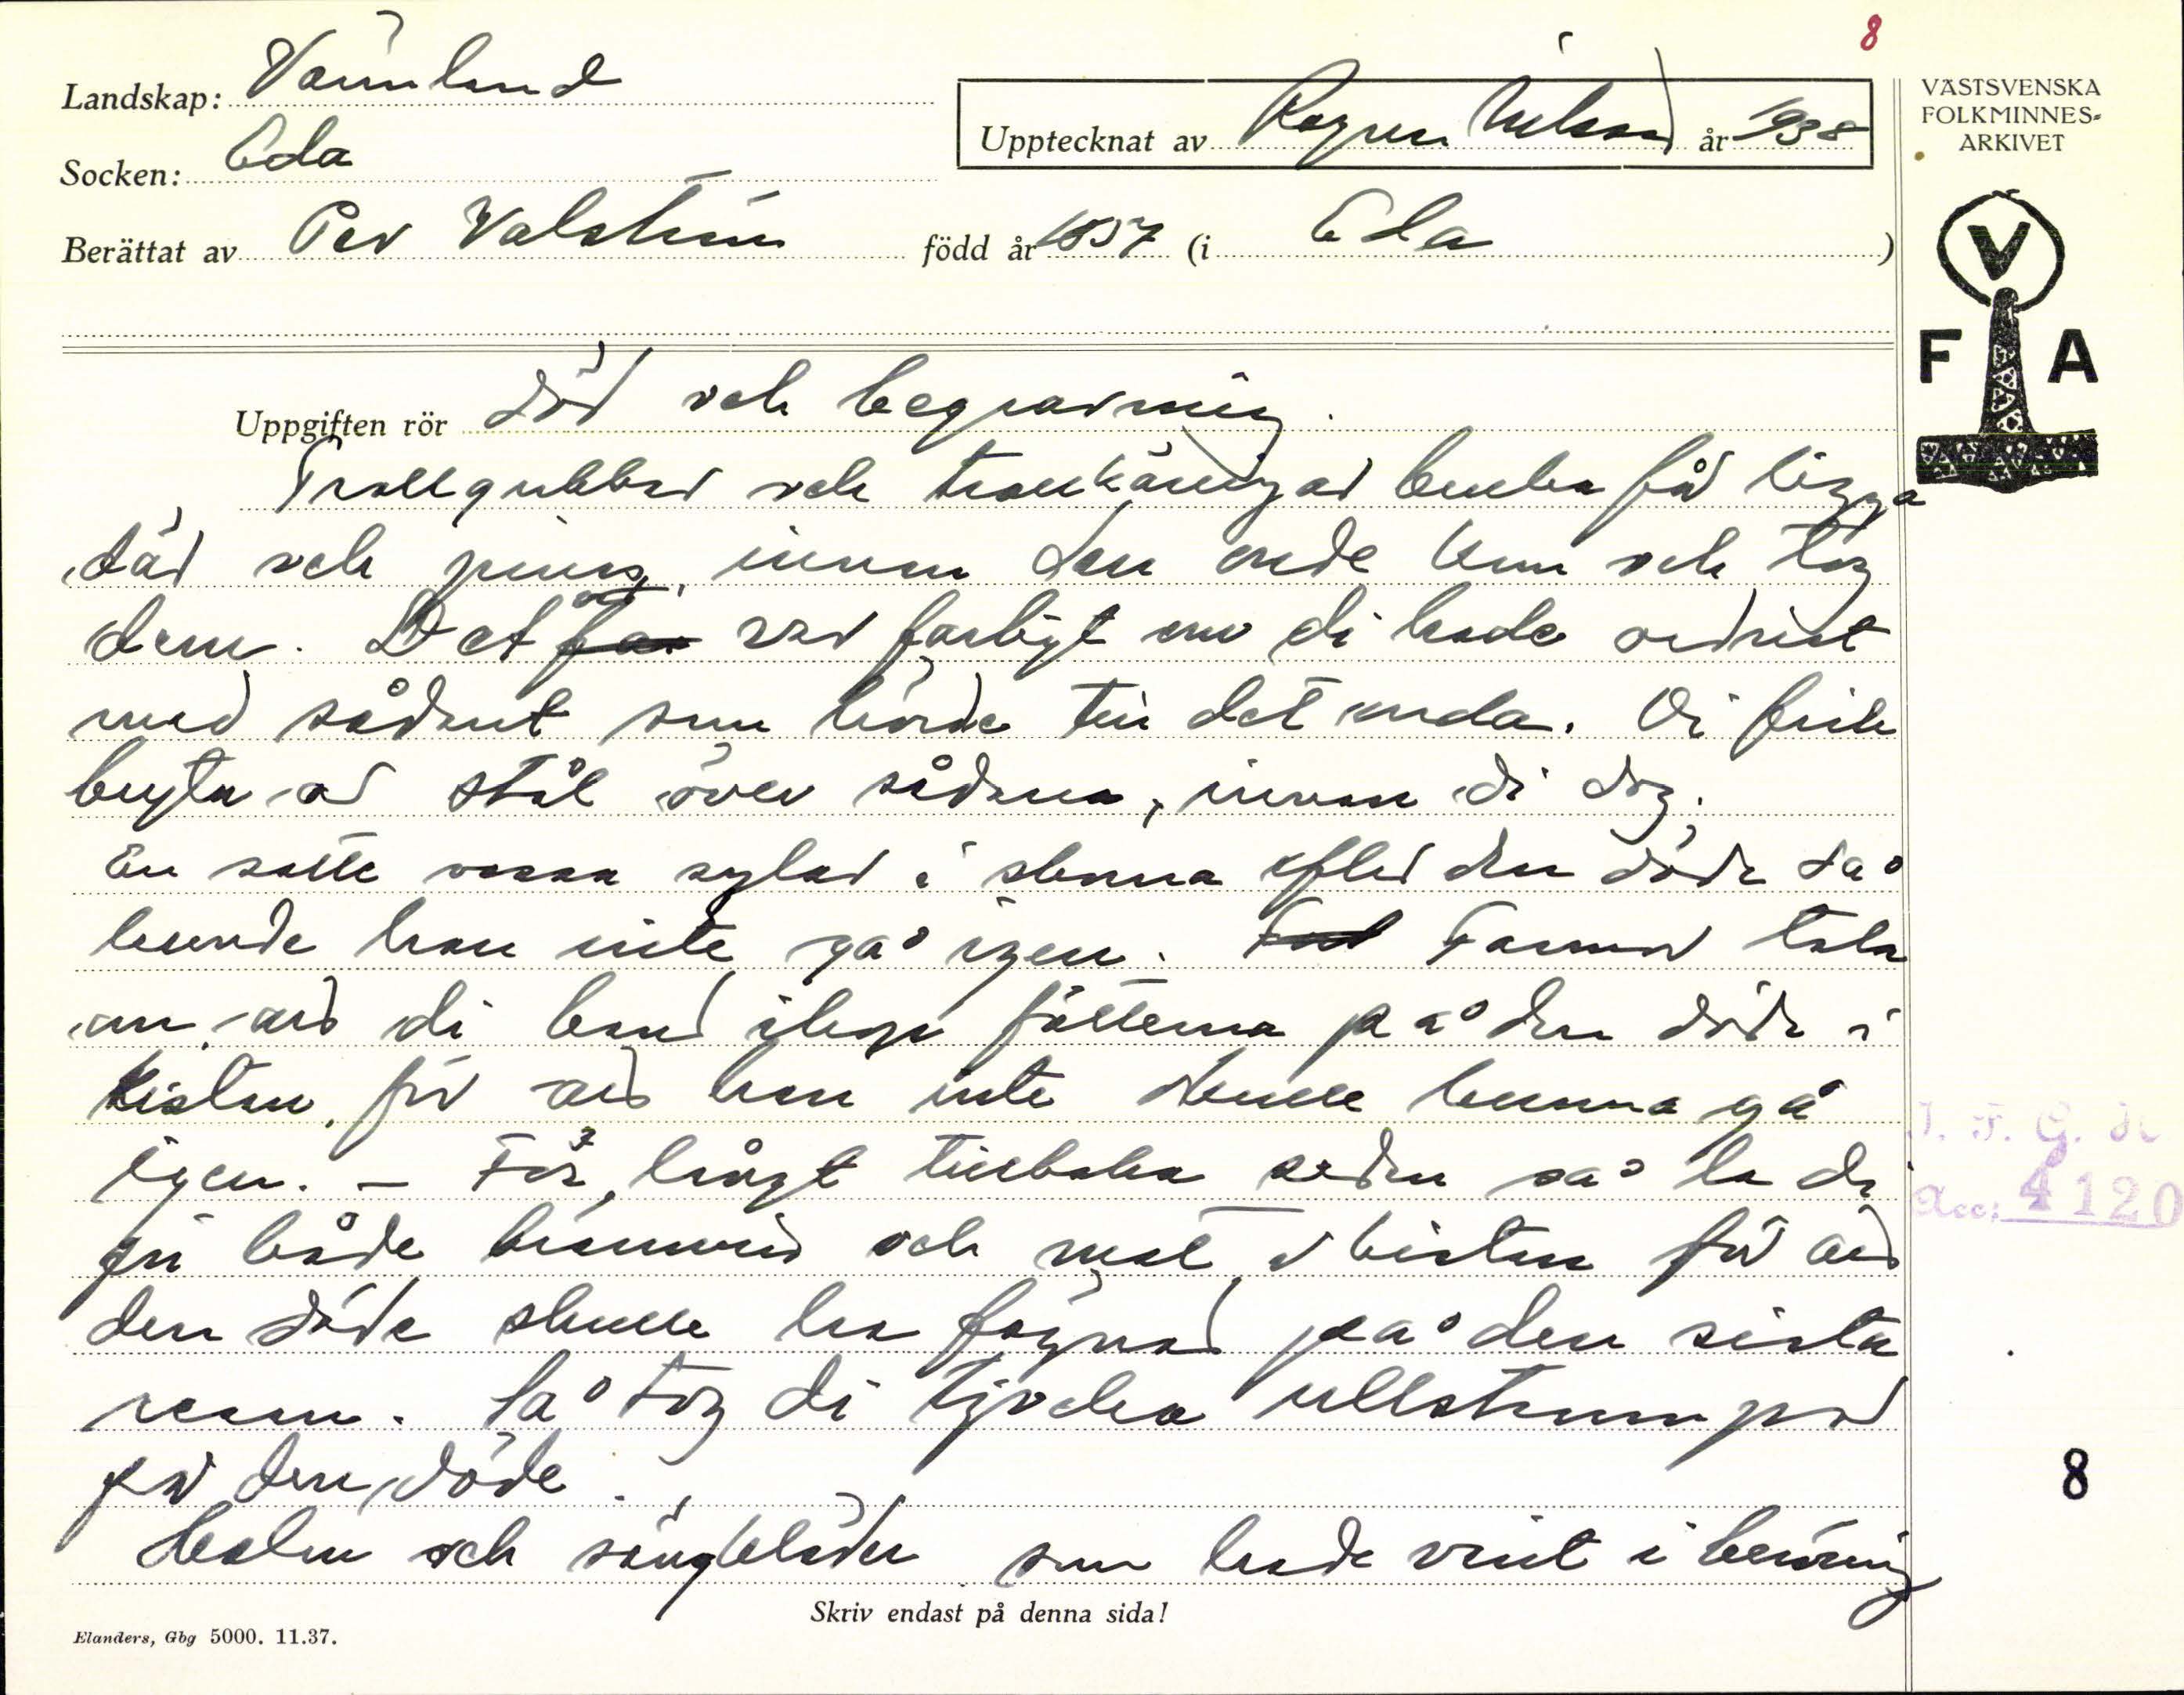 8
Landskap: Värmland
Upptecknat av Ragnar Nilsson år 1938
VÄSTSVENSKA
FOLKMINNES-
ARKIVET
Socken: Eda
Berättat av Per Valström född år 1857 (i Eda)
V
F A
Uppgiften rör Död och begravning.
Trollgubbar och trollkäringar kunde få ligga
där och pinas, innan den onde kom och tog
dem. Det var farligt om di hade
med sådant som hörde till det onda. Di fick
bryta a stål över sådana, innan di dog.
En satte vassa sylar i skorna efter den döde så
kunde han inte gå igen. Farmor tala
om, att di band ihop fötterna på den döde i
kistan, för att han inte skulle kunna gå
igen. – För långt tillbaka sedan så la di
ner både brännvin och mat i kistan för att
den döde skulle ha fägnad på den sista
resan. Så tog di tjocka ullstrumpor
på den döde.
Halm och sängkläder som hade vart i beröring
I. F. G. H.
Acc: 4120
8
Skriv endast på denna sida!
Elanders, Gbg 5000. 11.37.